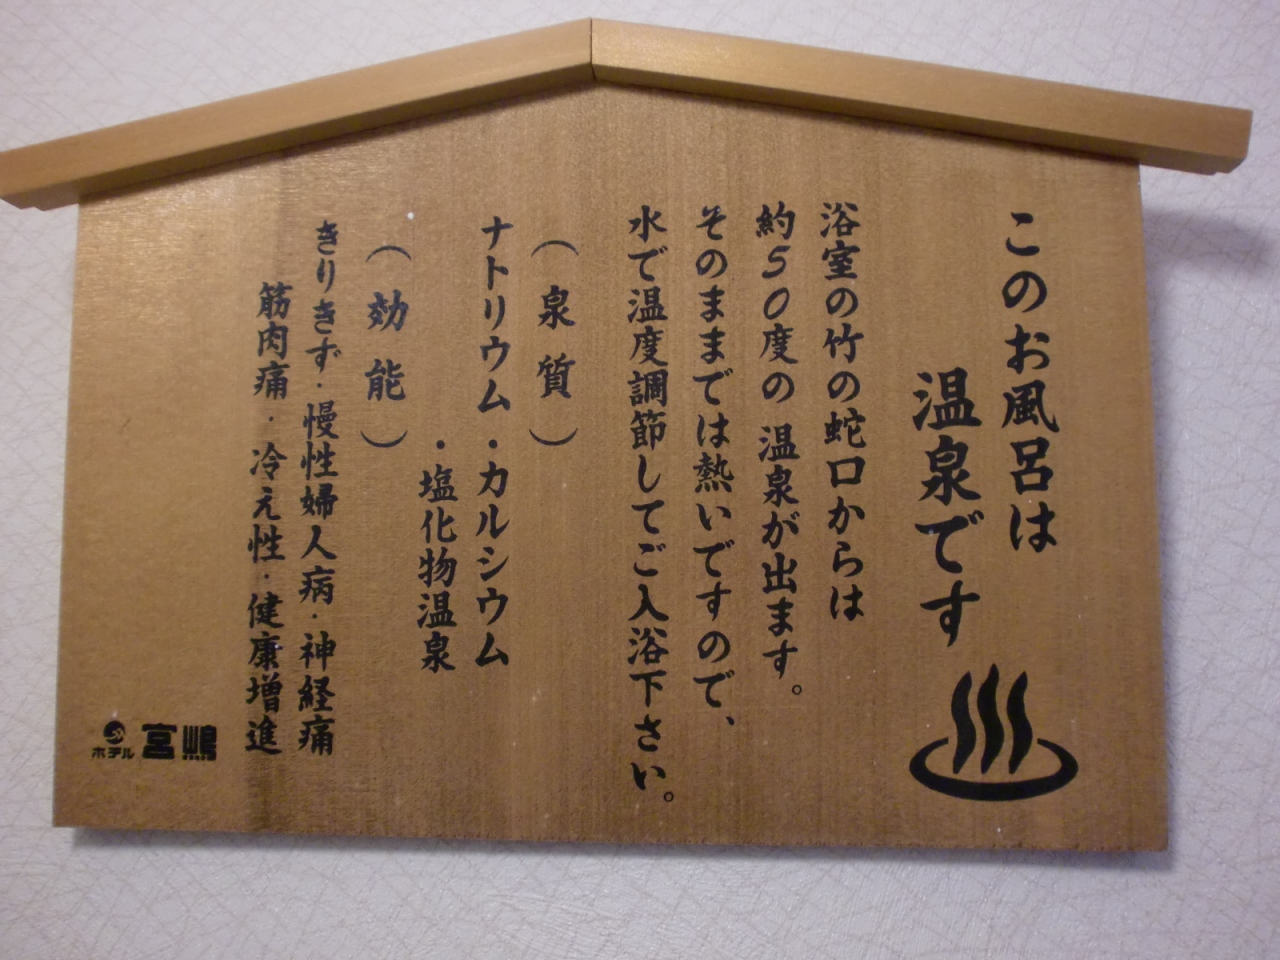 このお風呂は
温泉です
浴室の竹の蛇口からは
約50度の温泉が出ます。
そのままでは熱いですので、
水で温度調節してご入浴下さい。
（泉質）
ナトリウム・カルシウム
・塩化物温泉
（効能）
きりきず・慢性婦人病・神経痛
筋肉痛・冷え性・健康増進
ホテル 宮嶋